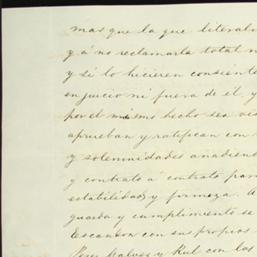 mas que la que literal
y á no reclamarla total n
y si lo hicieren consiente
en juicio ni fuera de él y
por el mismo hecho sea vis
aprueban y ratifican con
y solemnidades anadiend
y contrato á contrato par
estabilidad y firmeza. A
guarda y cumplimiento se
Escandon con sus propios
Galvez y Rul con los